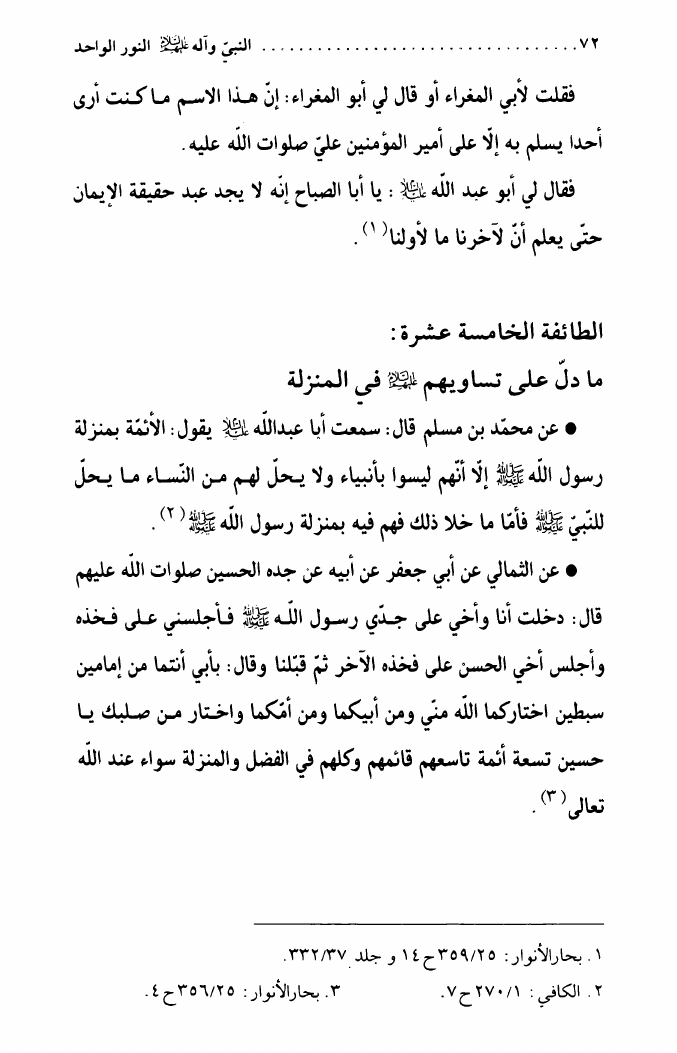 ٧٢ ................................ النبيّ وآله عليهم السلام النور الواحد
فقلت لأبي المغراء أو قال لي أبو المغراء: إنّ هذا الاسم ما كنت أرى
أحدا يسلم به إلّا على أمير المؤمنين عليّ صلوات الله عليه.
فقال لي أبو عبد الله عليه السلام : يا أبا الصباح إنّه لا يجد عبد حقيقة الإيمان
حتّى يعلم أنّ لآخرنا ما لأولنا(١).
الطائفة الخامسة عشرة:
ما دلّ على تساويهم عليهم السلام في المنزلة
● عن محمّد بن مسلم قال: سمعت أبا عبدالله عليه السلام يقول: الأئمّة بمنزلة
رسول الله ﷺ إلّا أنّهم ليسوا بأنبياء ولا يحلّ لهم من النّساء ما يحلّ
للنّبيّ ﷺ فأمّا ما خلا ذلك فهم فيه بمنزلة رسول الله ﷺ(٢).
● عن الثمالي عن أبي جعفر عن أبيه عن جده الحسين صلوات الله عليهم
قال: دخلت أنا وأخي على جدّي رسول الله ﷺ فأجلسني على فخذه
وأجلس أخي الحسن على فخذه الآخر ثمّ قبّلنا وقال: بأبي أنتما من إمامين
سبطين اختاركما الله منّي ومن أبيكما ومن أمّكما واختار من صلبك يا
حسين تسعة أئمة تاسعهم قائمهم وكلهم في الفضل والمنزلة سواء عند الله
تعالى(٣).
١. بحارالأنوار: ٣٥٩/٢٥ح١٤ و جلد ٣٣٢/٣٧.
٢. الكافي: ٢٧٠/١ح٧. ٣. بحارالأنوار: ٣٥٦/٢٥ح٤.